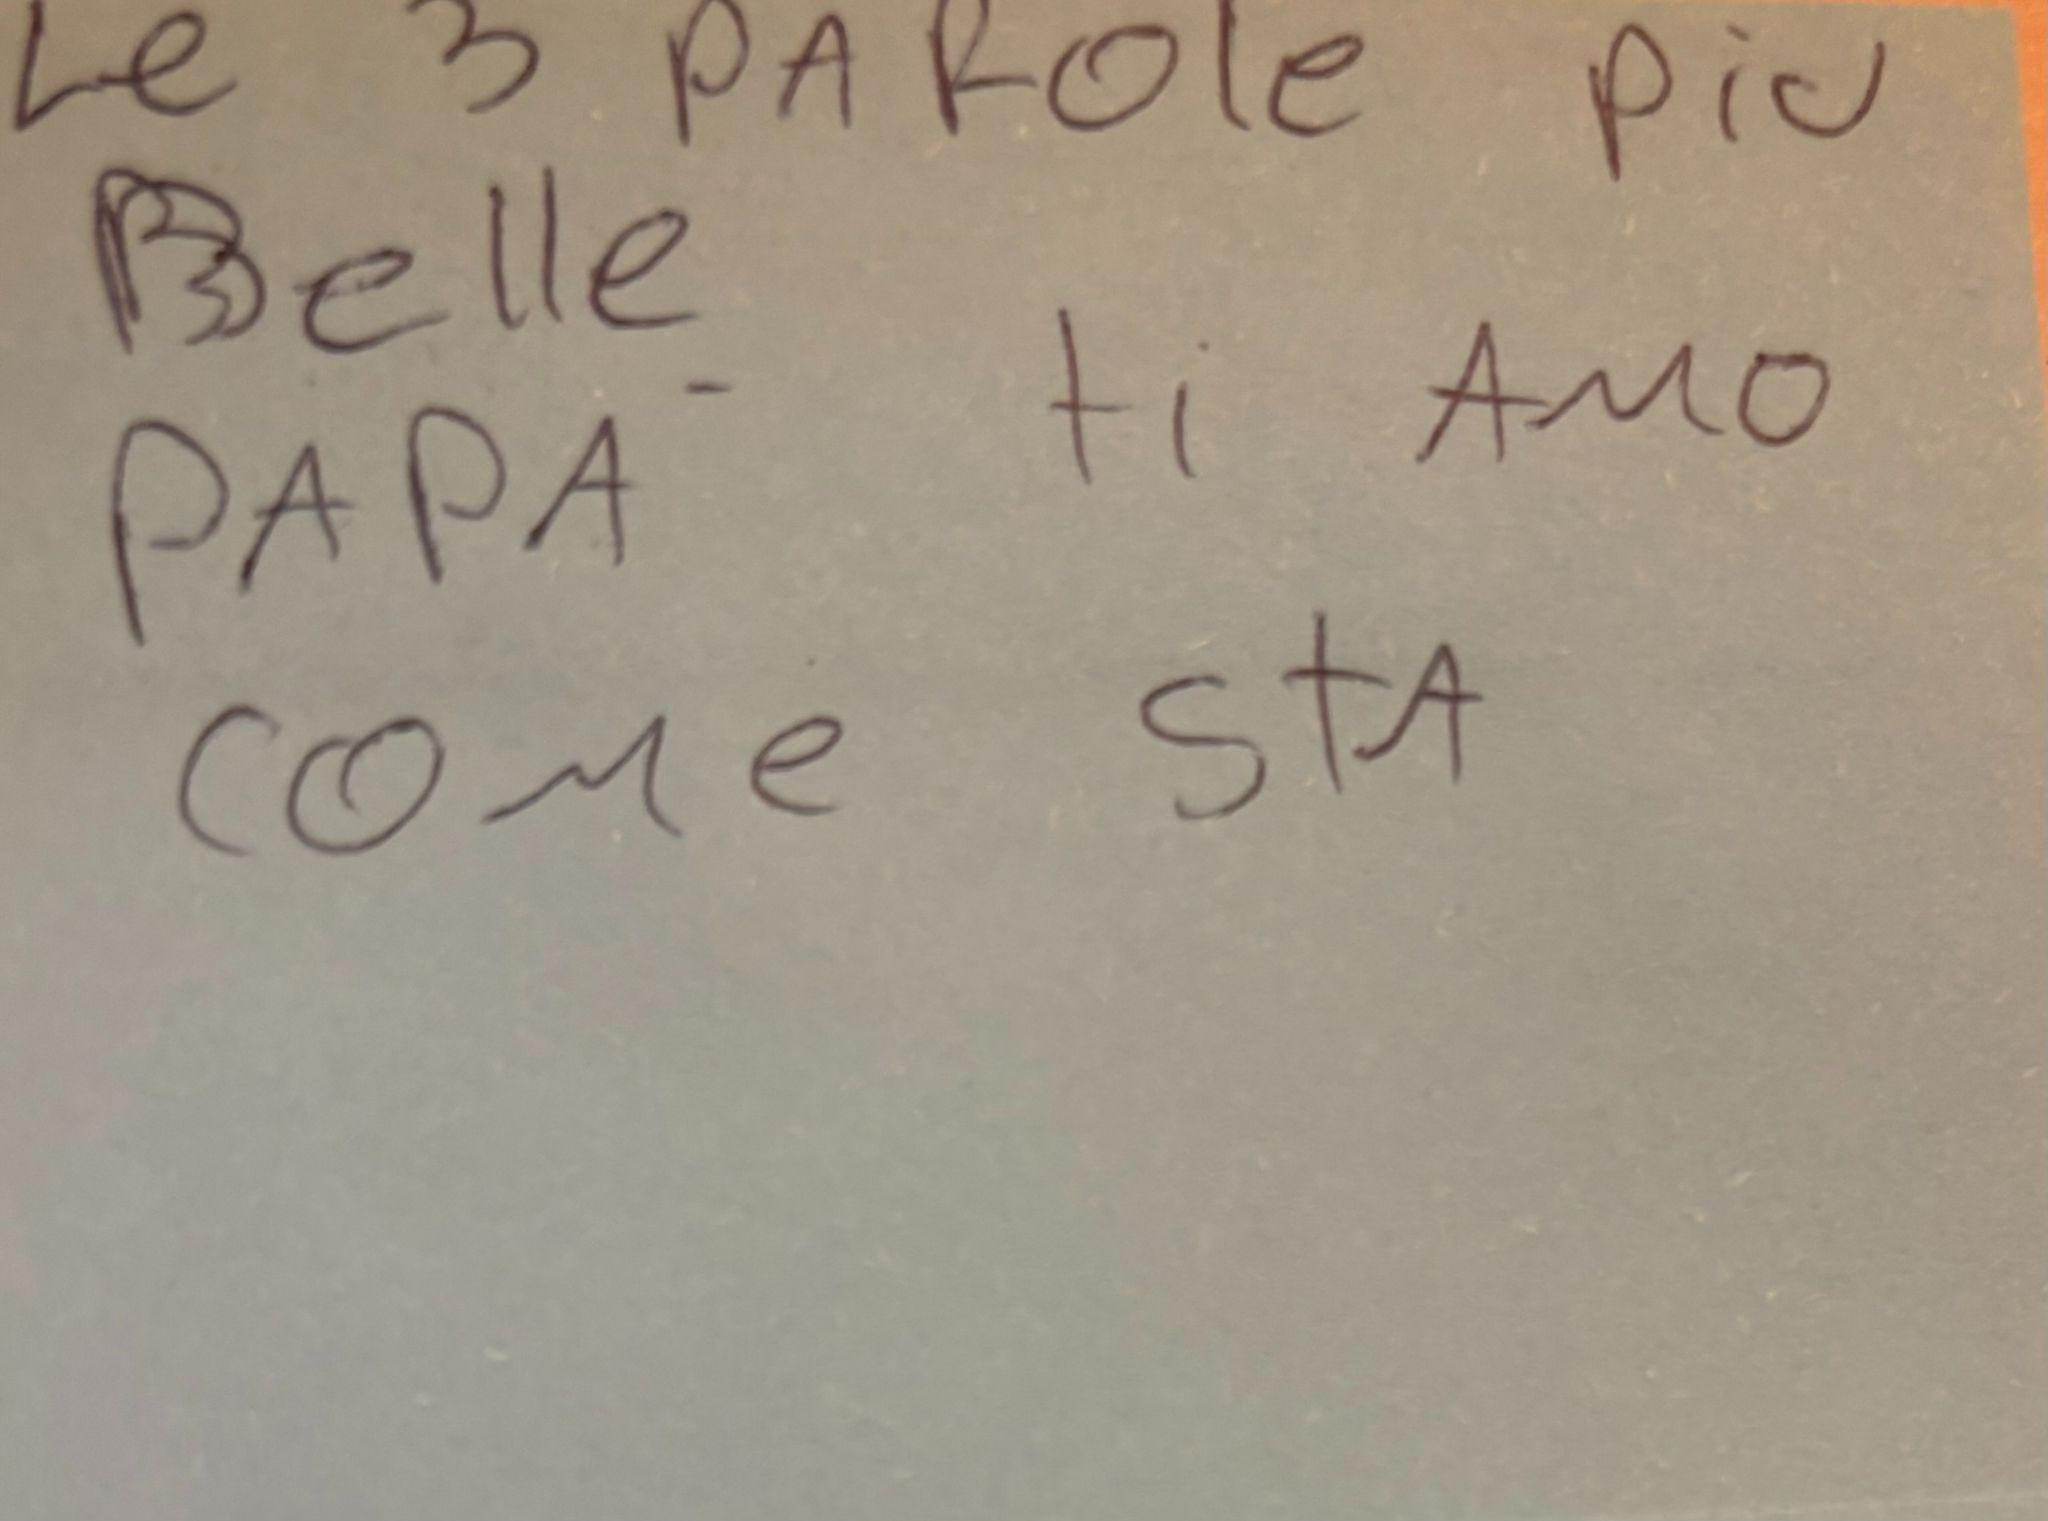 Le 3 PARole piu
Belle
PAPA- ti AMO
COMe StA